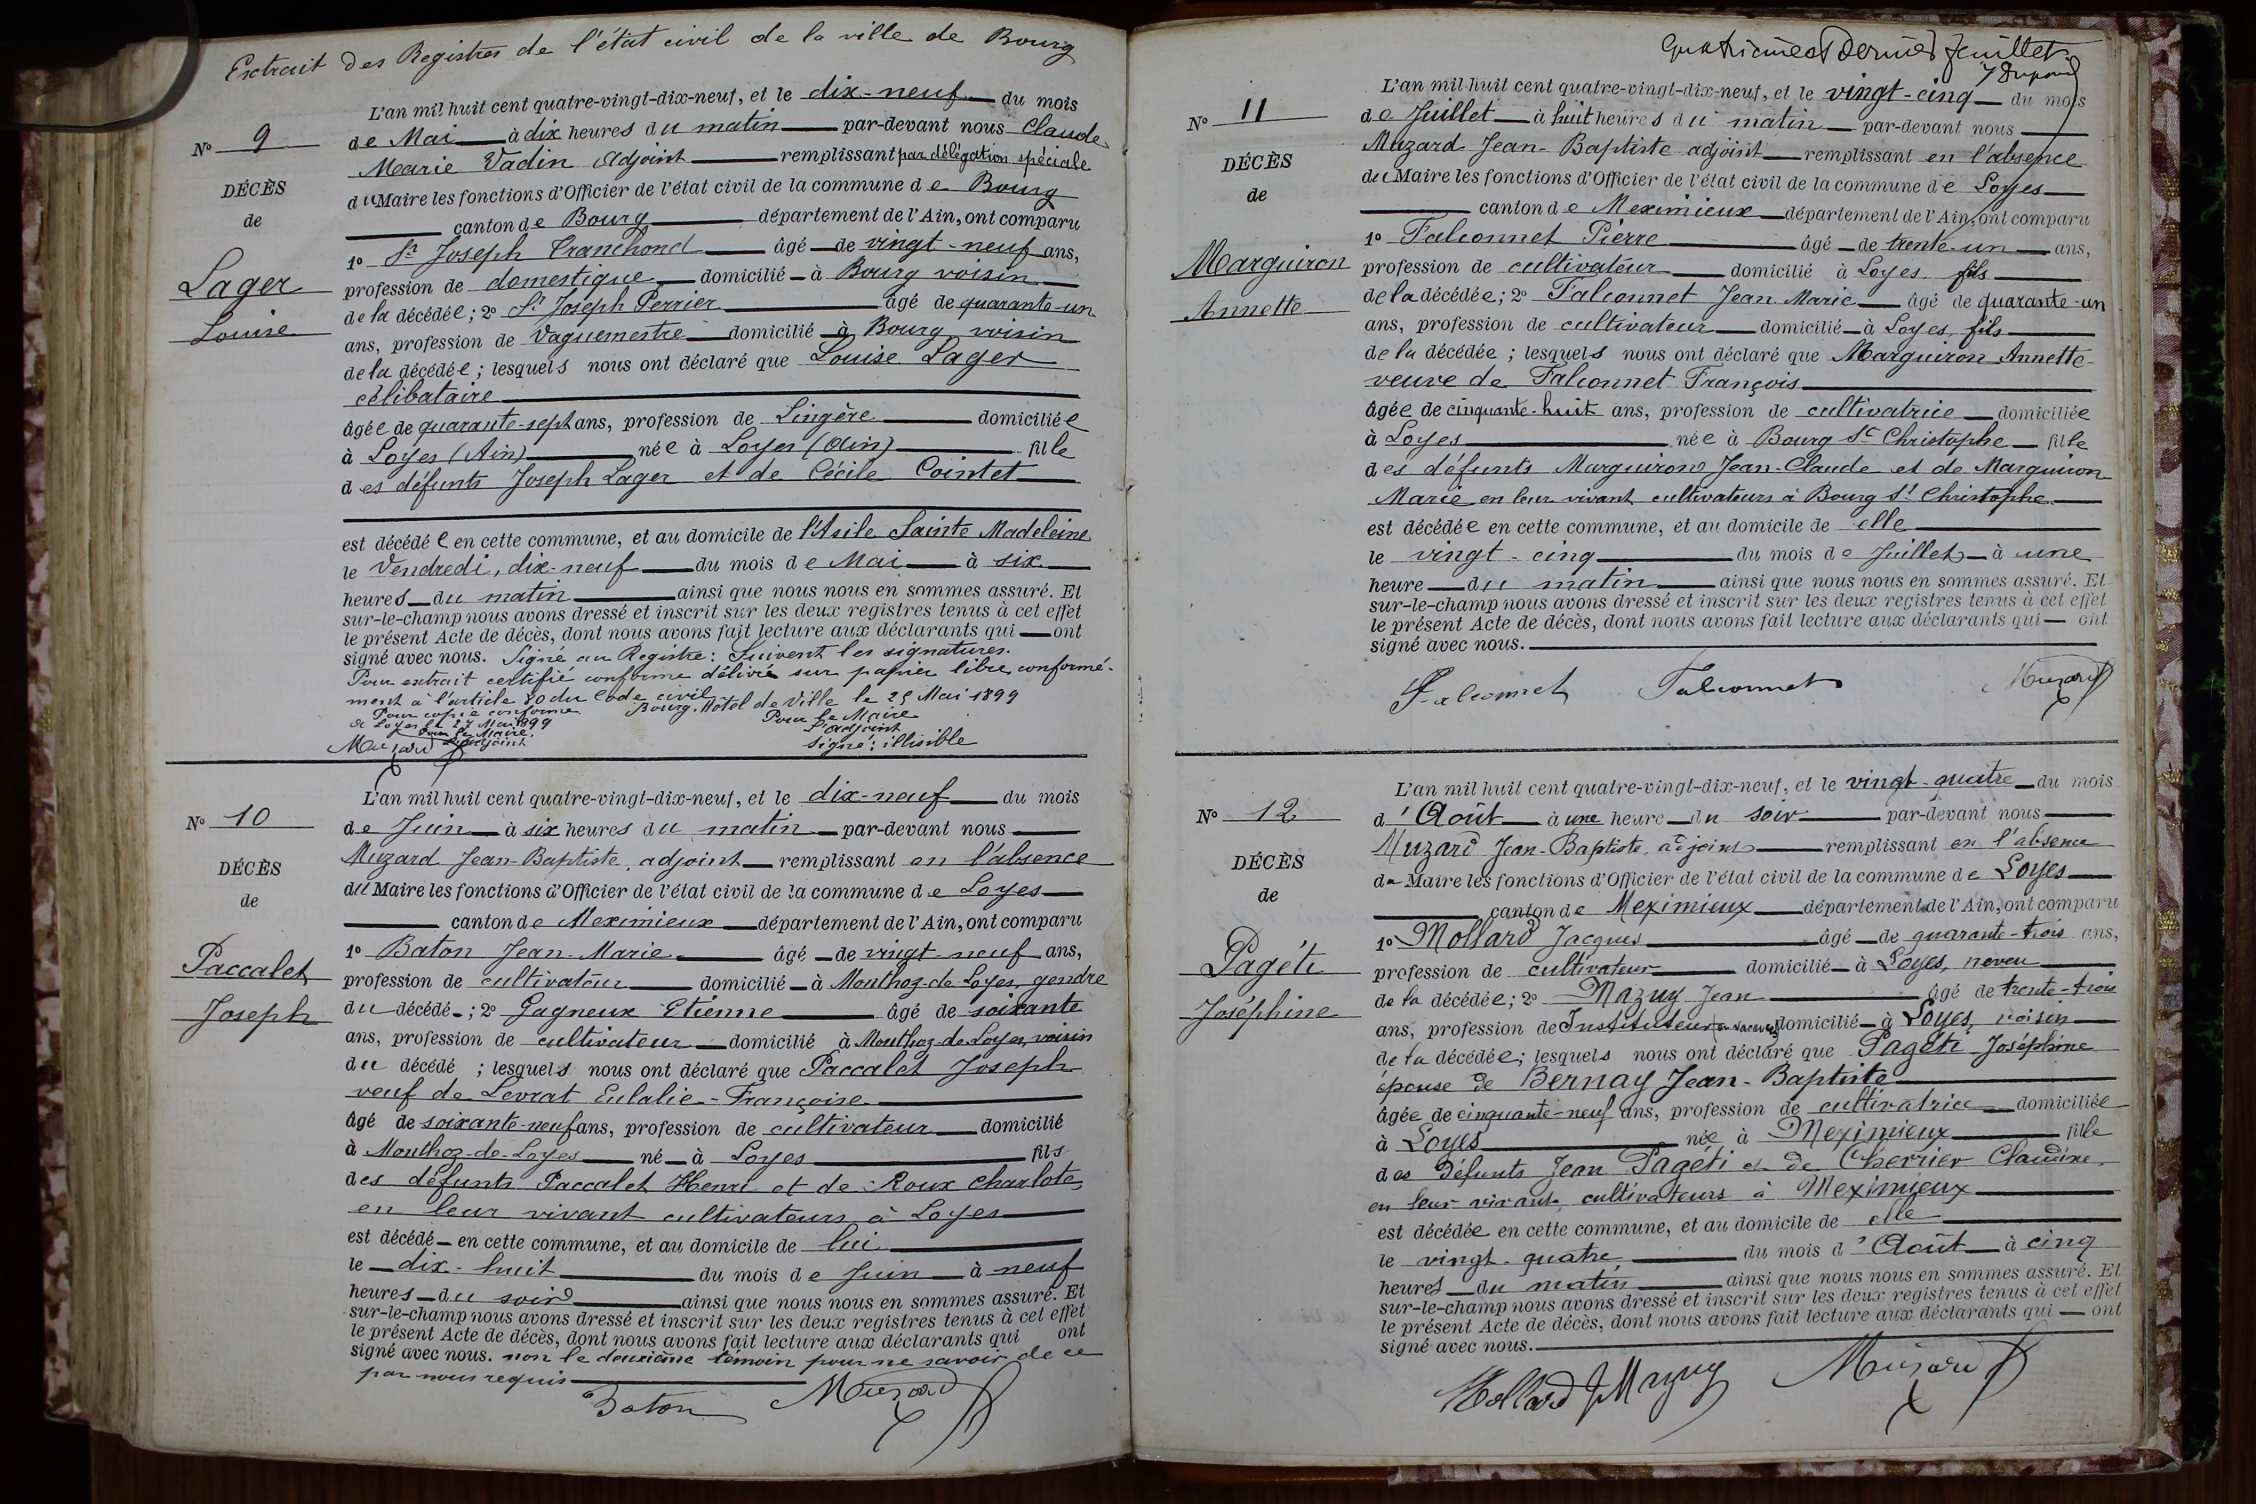 Extrait des Registres de l'état civil de la ville de Bourg
L'an mil huit cent quatre-vingt-dix-neuf, et le dix-neuf du mois
N° 9
de Mai à dix heures du matin par-devant nous Claude
Marie Vadin Adjoint remplissant par délégation spéciale
DÉCÈS
du Maire les fonctions d'Officier de l'état civil de la commune de Bourg
de
canton de Bourg département de l'Ain, ont comparu
1° Sr Joseph Cranchond âgé de vingt-neuf ans,
Lager
profession de domestique domicilié à Bourg voisin
de la décédée; 2° Sr Joseph Perrier âgé de quarante-un
Louise
ans, profession de Vaguemestre domicilié à Bourg voisin
de la décédée; lesquels nous ont déclaré que Louise Lager
célibataire
âgée de quarante-sept ans, profession de Lingère domiciliée
à Loyes (Ain) née à Loyes (Ain) fille
des défunts Joseph Lager et de Cécile Cointet
est décédée en cette commune, et au domicile de l'Asile Sainte Madeleine
le Vendredi, dix-neuf du mois de Mai à six
heures du matin ainsi que nous nous en sommes assuré. Et
sur-le-champ nous avons dressé et inscrit sur les deux registres tenus à cet effet
le présent Acte de décès, dont nous avons fait lecture aux déclarants qui ont
signé avec nous. Signé au Registre: Suivent les signatures.
Pour extrait certifié conforme délivré sur papier libre conformé-
ment à l'article 80 du Code civil
Bourg. Hôtel de Ville le 25 Mai 1899
Pour copie conforme
Pour le Maire
A Loyes le 27 Mai 1899
L'adjoint
Pour le Maire.
L'adjoint
signé: illisible
Muzard
L'an mil huit cent quatre-vingt-dix-neuf, et le dix-neuf du mois
N° 10
de Juin à six heures du matin par-devant nous
Muzard Jean-Baptiste, adjoint remplissant en l'absence
DÉCÈS
du Maire les fonctions d'Officier de l'état civil de la commune de Loyes
de
canton de Meximieux département de l'Ain, ont comparu
1° Baton Jean-Marie âgé de vingt-neuf ans,
Paccalet
profession de cultivateur domicilié à Monthoz-de-Loyes, gendre
Joseph
du décédé; 2° Gagneux Etienne âgé de soixante
ans, profession de cultivateur domicilié à Monthoz-de-Loyes, voisin
du décédé; lesquels nous ont déclaré que Paccalet Joseph
veuf de Levrat Eulalie-Françoise
âgé de soixante-neuf ans, profession de cultivateur domicilié
à Monthoz-de-Loyes né à Loyes fils
des défunts Paccalet Henri et de Roux Charlote,
en leur vivant cultivateurs à Loyes
est décédé en cette commune, et au domicile de lui
le dix-huit du mois de Juin à neuf
heures du soir ainsi que nous nous en sommes assuré. Et
sur-le-champ nous avons dressé et inscrit sur les deux registres tenus à cet effet
le présent Acte de décès, dont nous avons fait lecture aux déclarants qui ont
signé avec nous. non le deuxième témoin pour ne savoir de ce
par nous requis
Baton Muzard
quatrième & dernier feuillet
L'an mil huit cent quatre-vingt-dix-neuf, et le vingt-cinq du mois
N° 11
de Juillet à huit heures du matin par-devant nous
Muzard Jean-Baptiste adjoint remplissant en l'absence
DÉCÈS
du Maire les fonctions d'Officier de l'état civil de la commune de Loyes
de
canton de Meximieux département de l'Ain, ont comparu
1° Falconnet Pierre âgé de trente-un ans,
Marguiron
profession de cultivateur domicilié à Loyes fils
de la décédée; 2° Falconnet Jean Marie âgé de quarante-un
Annette
ans, profession de cultivateur domicilié à Loyes, fils
de la décédée; lesquels nous ont déclaré que Marguiron Annette
veuve de Falconnet François
âgée de cinquante-huit ans, profession de cultivatrice domiciliée
à Loyes née à Bourg St Christophe fille
des défunts Marguiron Jean-Claude et de Marguiron
Marie en leur vivant cultivateurs à Bourg St Christophe
est décédée en cette commune, et au domicile de elle
le vingt-cinq du mois de Juillet à une
heure du matin ainsi que nous nous en sommes assuré. Et
sur-le-champ nous avons dressé et inscrit sur les deux registres tenus à cet effet
le présent Acte de décès, dont nous avons fait lecture aux déclarants qui ont
signé avec nous.
Falconnet Falconnet Muzard
L'an mil huit cent quatre-vingt-dix-neuf, et le vingt-quatre du mois
N° 12
d'Août à une heure du soir par-devant nous
Muzard Jean-Baptiste adjoint remplissant en l'absence
DÉCÈS
du Maire les fonctions d'Officier de l'état civil de la commune de Loyes
de
canton de Meximieux département de l'Ain, ont comparu
1° Mollard Jacques âgé de quarante-trois ans,
Pagéti
profession de cultivateur domicilié à Loyes, neveu
de la décédée; 2° Mazuy Jean âgé de trente-trois
Joséphine
ans, profession de Instituteur (en vacances) domicilié à Loyes, voisin
de la décédée; lesquels nous ont déclaré que Pagéti Joséphine
épouse de Bernay Jean-Baptiste
âgée de cinquante-neuf ans, profession de cultivatrice domiciliée
à Loyes née à Meximieux fille
des défunts Jean Pagéti et de Cherrier Claudine,
en leur vivant, cultivateurs à Meximieux
est décédée en cette commune, et au domicile de elle
le vingt-quatre du mois d'Août à cinq
heures du matin ainsi que nous nous en sommes assuré. Et
sur-le-champ nous avons dressé et inscrit sur les deux registres tenus à cet effet
le présent Acte de décès, dont nous avons fait lecture aux déclarants qui ont
signé avec nous.
Mollard J Mazuy Muzard